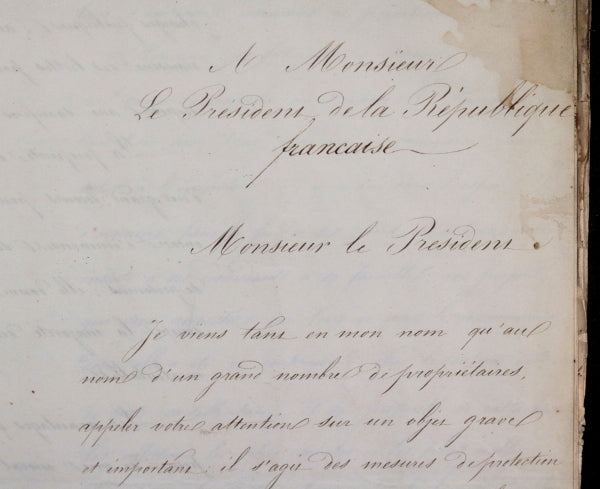 A Monsieur
Le Président de la République
francaise
Monsieur le Président
Je viens tant en mon nom qu'au
nom d'un grand nombre de propriétaires,
appeler votre attention sur un objet grave
et important : il s'agit des mesures de protection